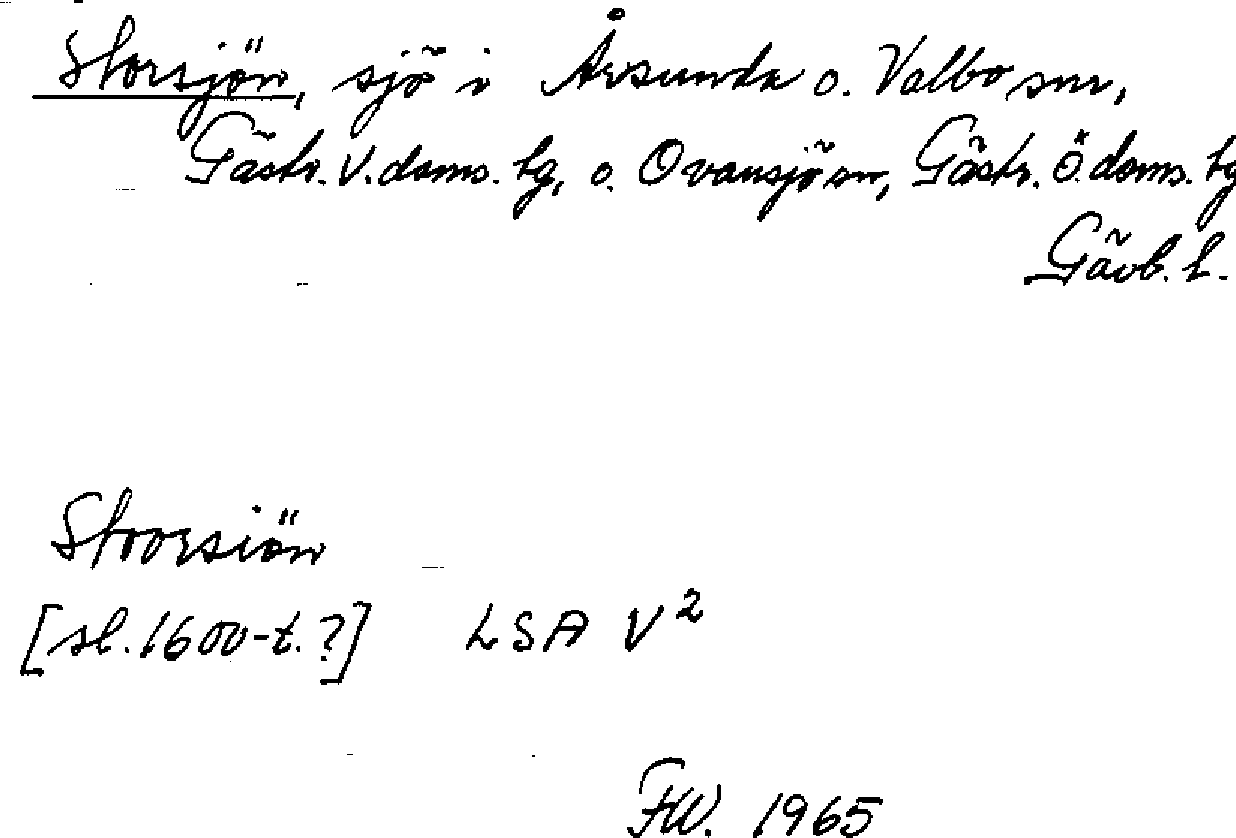 Storsjön, sjö i Årsunda o. Valbo snr,
Gästr. V. doms. tg, o. Ovansjö sn, Gästr. Ö. doms. tg
Gävb. l.
Stoorsiön
[sl. 1600-t.?] LSA V²
FW. 1965